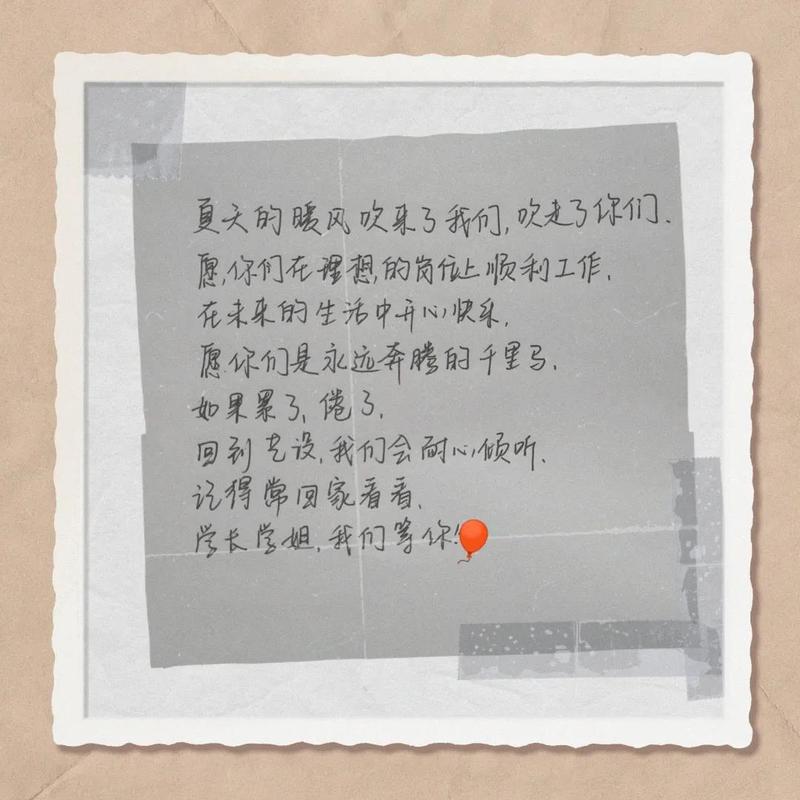 夏天的暖风吹来了我们,吹走了你们.
愿,你们在理想,的岗位上顺利工作.
在未来的生活中开心快乐.
愿你们是永远奔腾的千里马.
如果累了,倦了,
回到 设,我们会耐心倾听.
记得常回家看看.
学长学姐,我们等你!